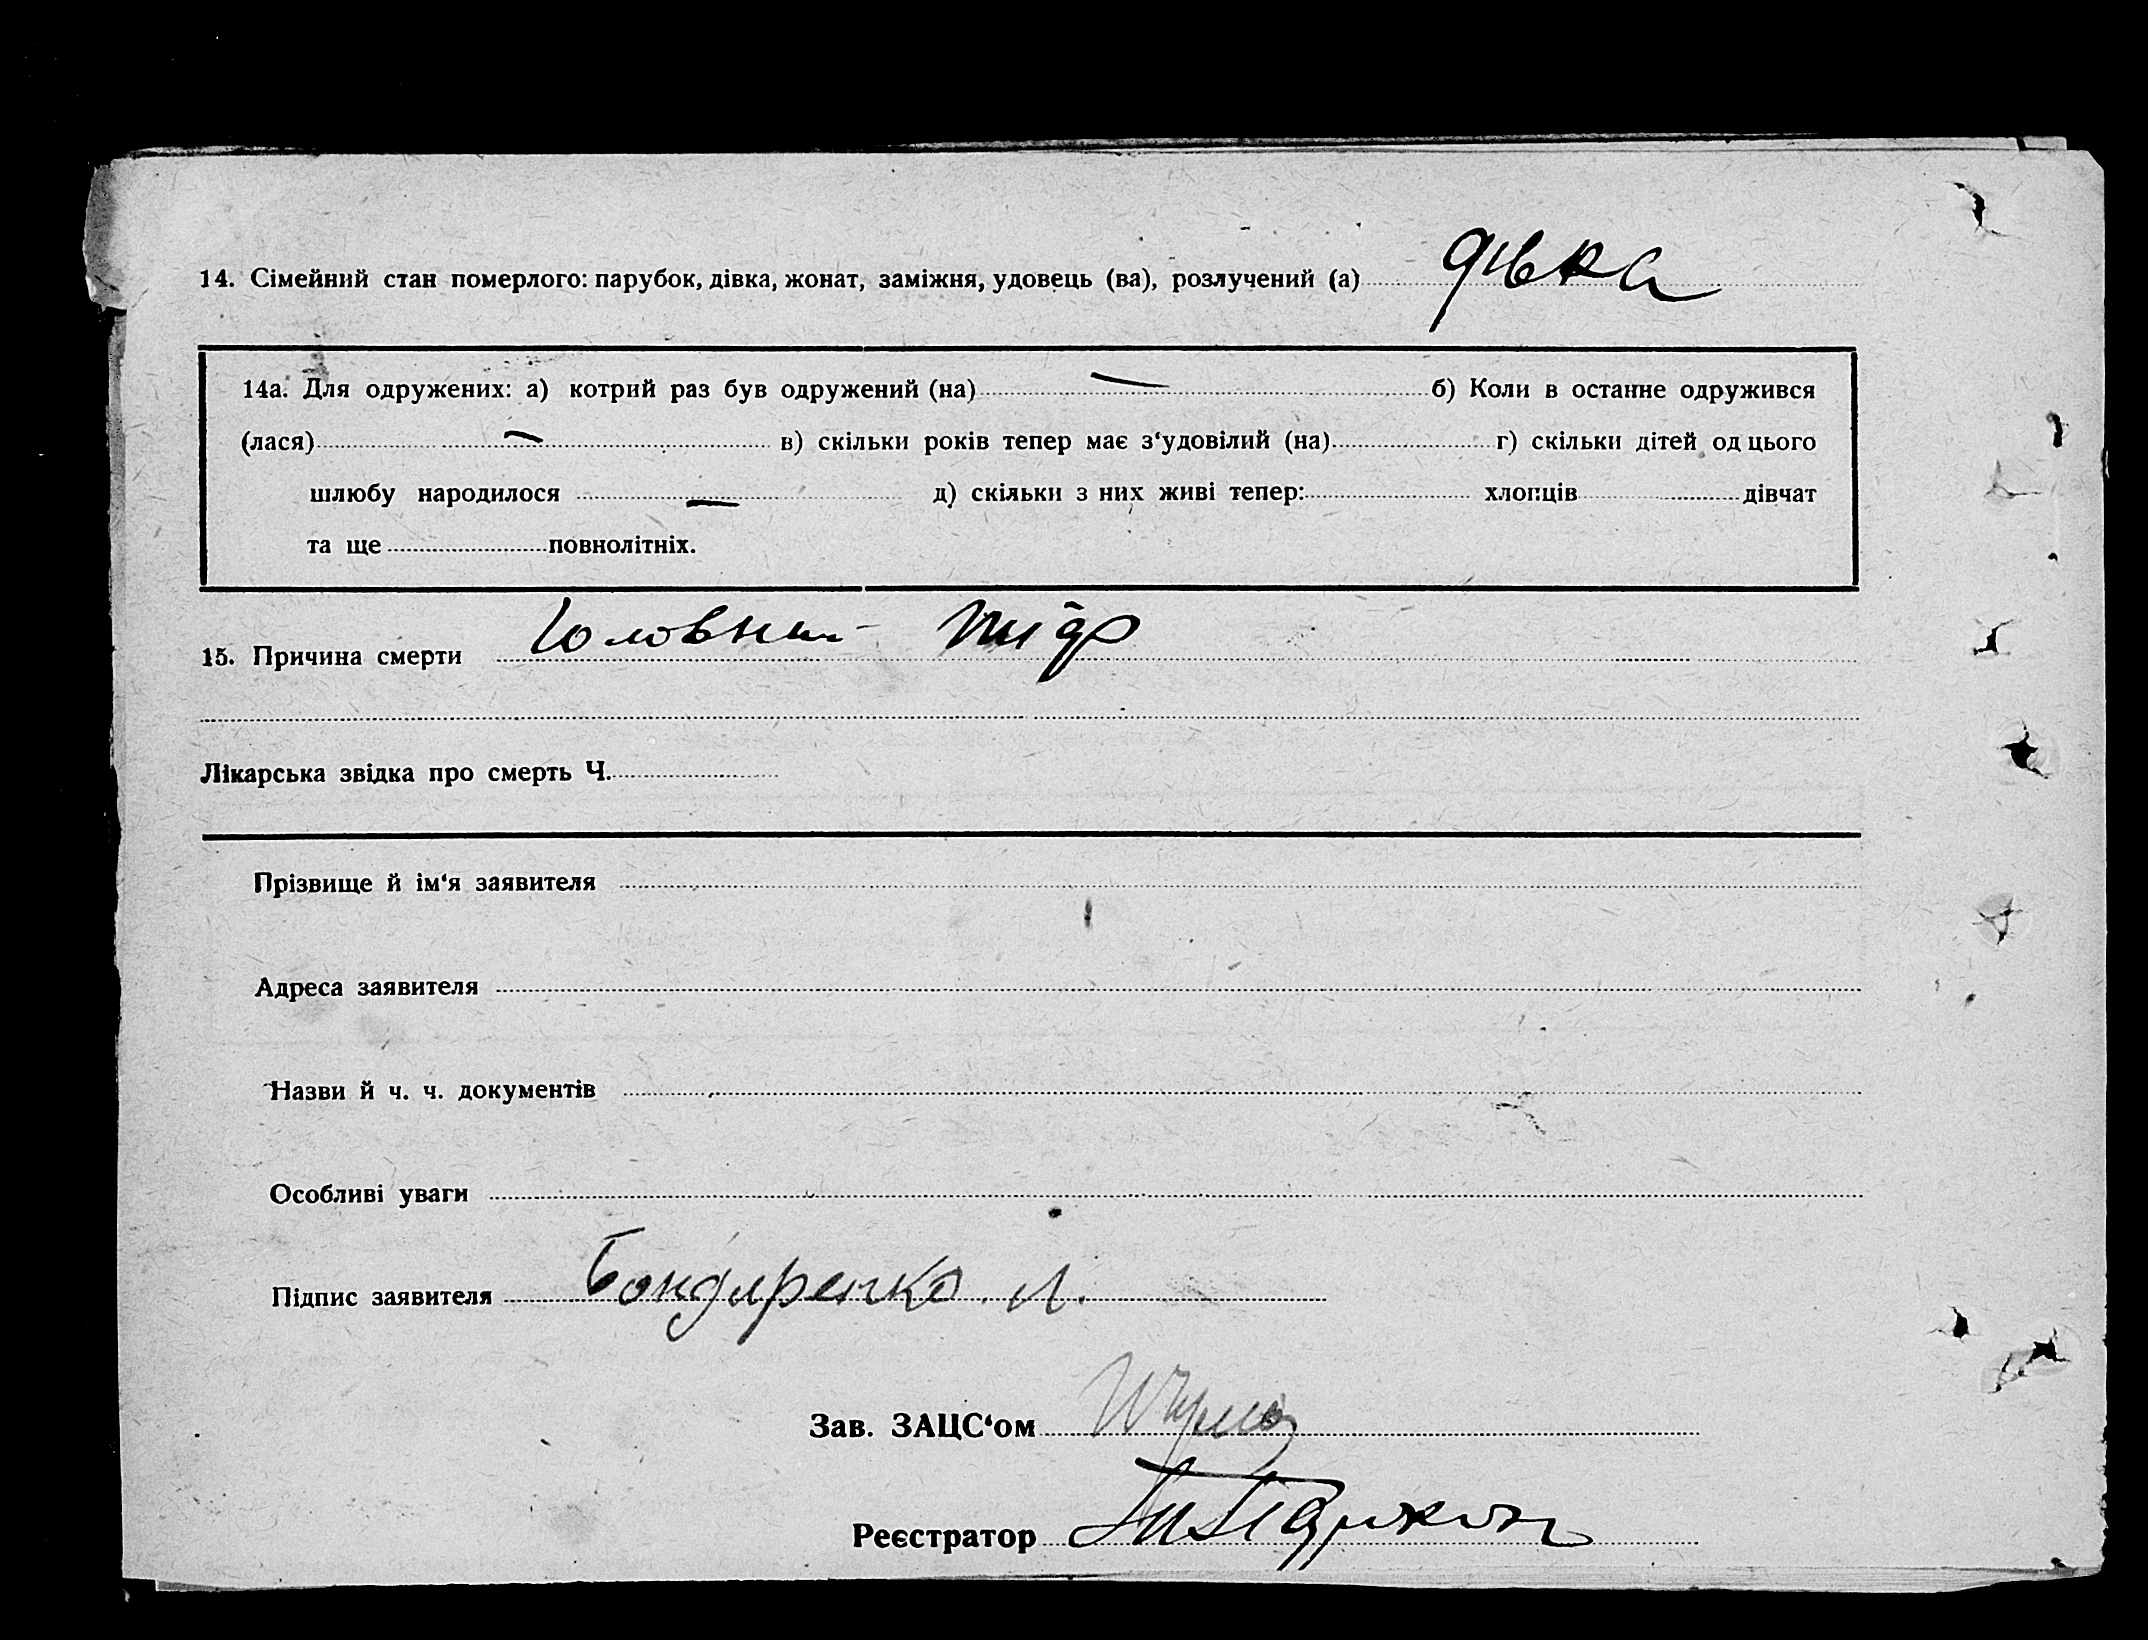 14. Сімейний стан померлого: парубок, дівка, жонат, заміжня, удовець (ва), розлучений (а) дівка
14а. Для одружених: а) котрий раз був одружений (на) — б) Коли в останне одружився
(лася) — в) скільки років тепер має з‘удовілий (на) г) скільки дітей од цього
шлюбу народилося — д) скільки з них живі тепер: хлопців дівчат
та ще повнолітніх.
15. Причина смерти Головний тиф
Лікарська звідка про смерть Ч.
Прізвище й ім‘я заявителя
Адреса заявителя
Назви й ч. ч. документів
Особливі уваги
Підпис заявителя Бондаренко. Л.
Зав. ЗАЦС‘ом
Реєстратор